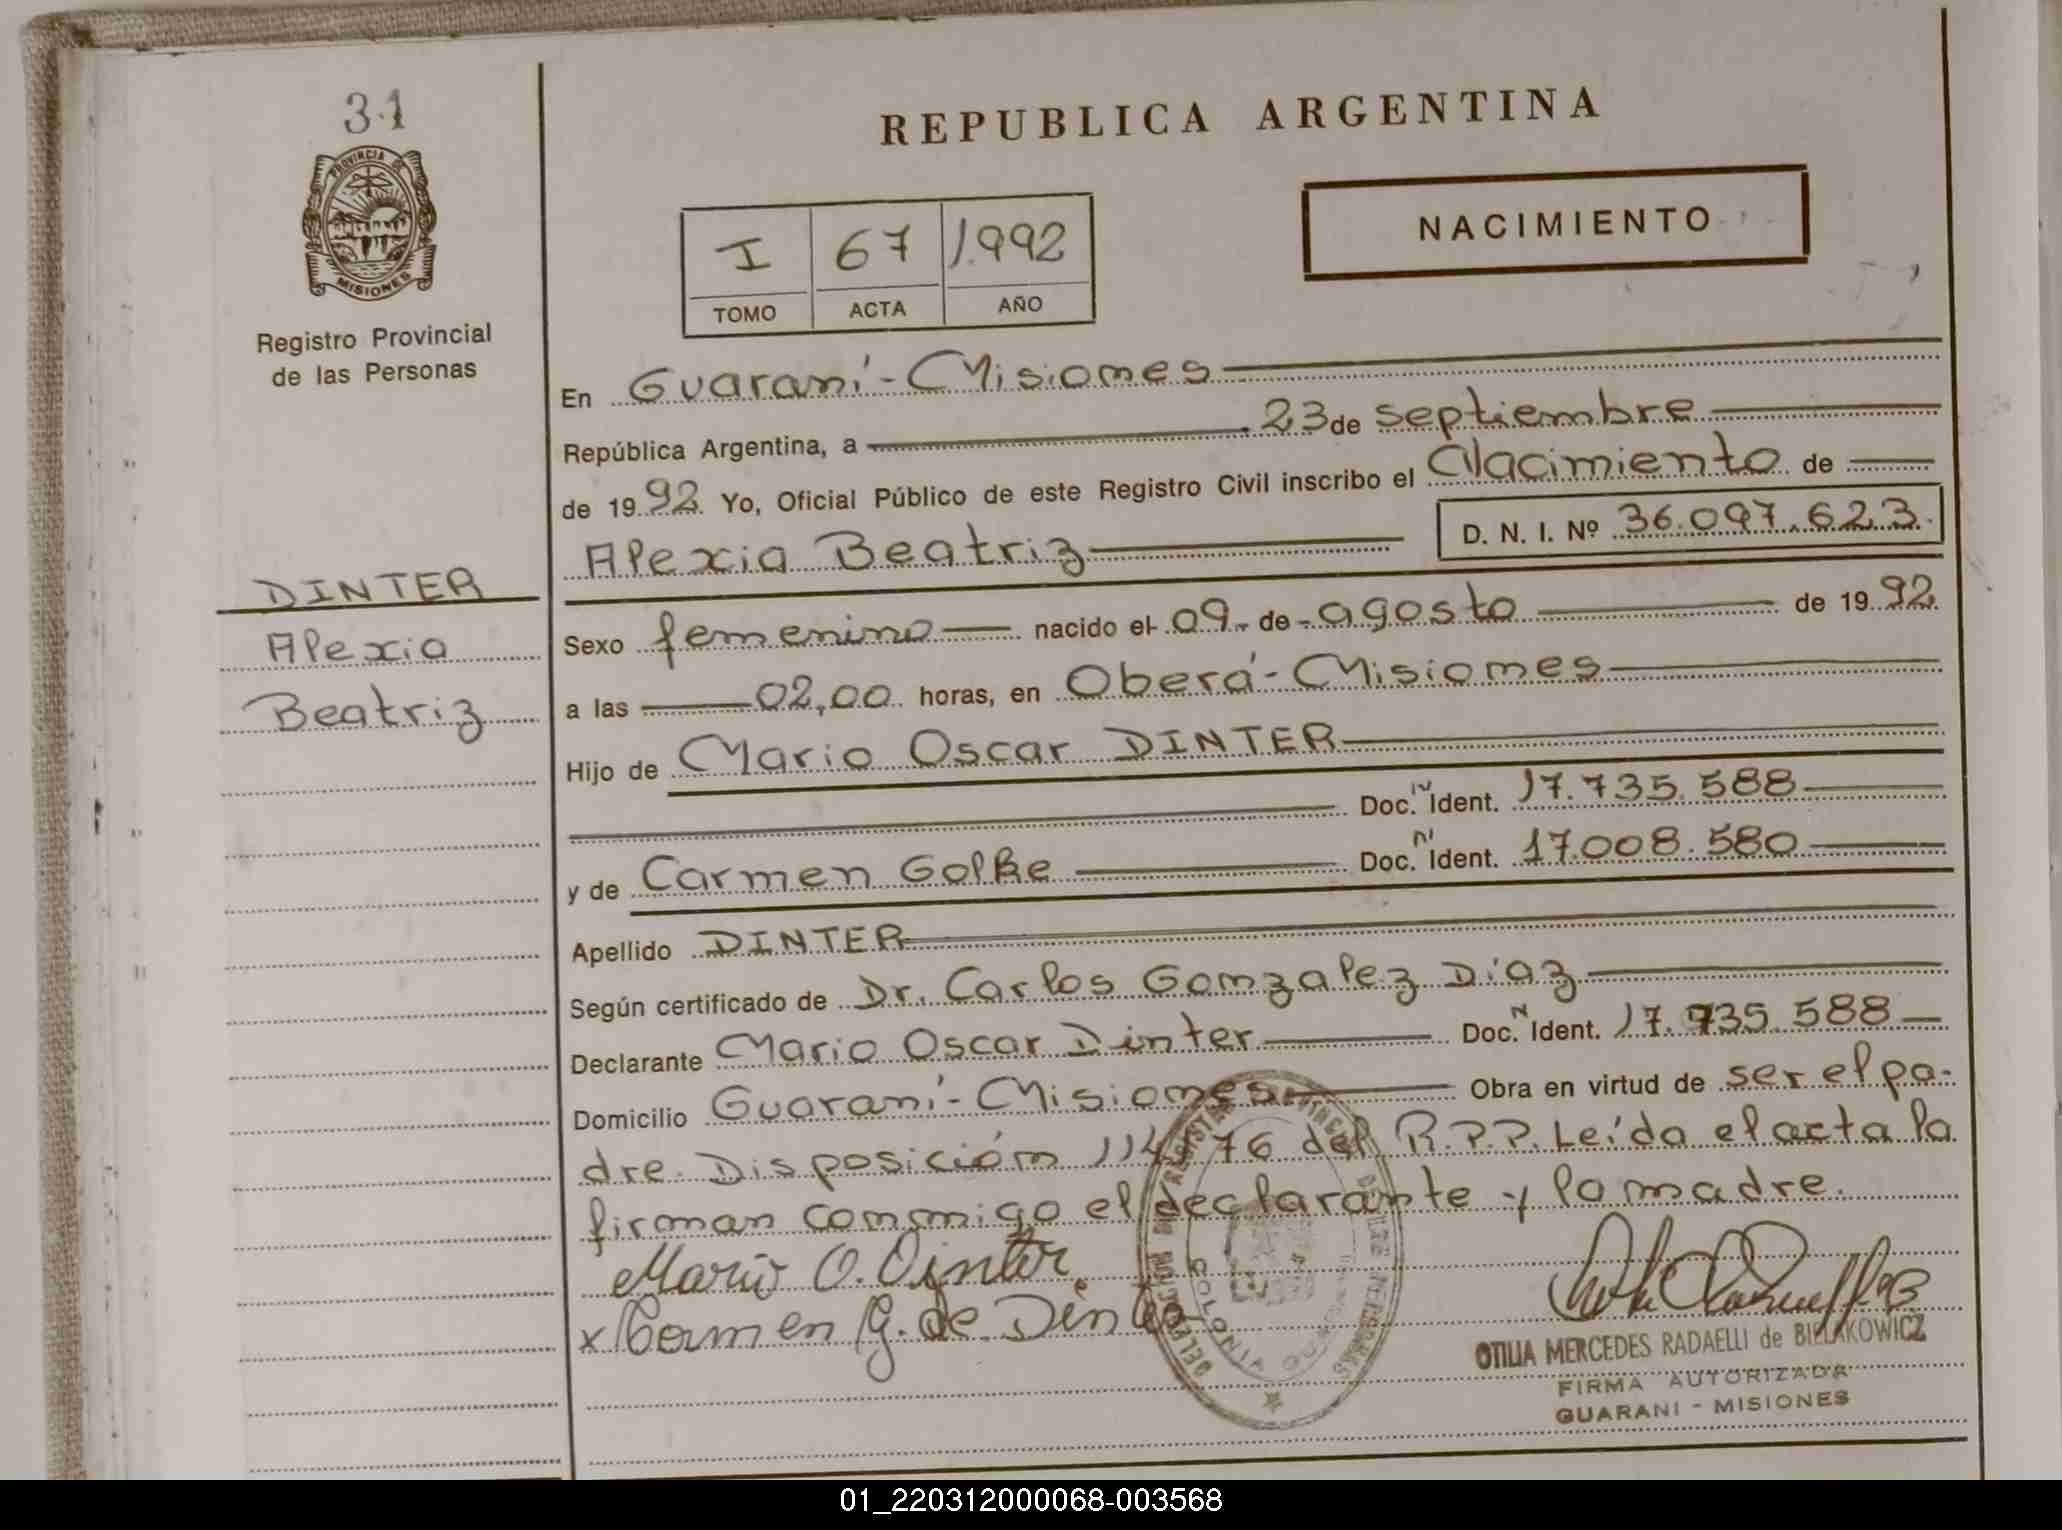 31
PROVINCIA DE
MISIONES
Registro Provincial
de las Personas
REPUBLICA ARGENTINA
NACIMIENTO
I 67 1.992
TOMO ACTA AÑO
En Guaraní-Misiones
República Argentina, a 23 de septiembre
de 1992. Yo, Oficial Público de este Registro Civil inscribo el Nacimiento de
Alexia Beatriz D. N. I. Nº 36.097.623.
DINTER
Alexia
Beatriz
Sexo femenino nacido el 09. de agosto de 1992.
a las 02,00 horas, en Oberá-Misiones
Hijo de Mario Oscar DINTER
Doc. N Ident. 17.735.588
y de Carmen Golke Doc. N Ident. 17.008.580
Apellido DINTER
Según certificado de Dr. Carlos Gonzalez Díaz
Declarante Mario Oscar Dinter Doc. N Ident. 17.735.588
Domicilio Guaraní-Misiones Obra en virtud de ser el pa-
dre. Disposición 114/76 del R.P.P. Leída el acta la
firman conmigo el declarante y la madre.
Mario O. Dinter
x Carmen G. de Dinter
COLONIA GUARANI
OTILIA MERCEDES RADAELLI de BIELAKOWICZ
FIRMA AUTORIZADA
GUARANI - MISIONES
01_220312000068-003568